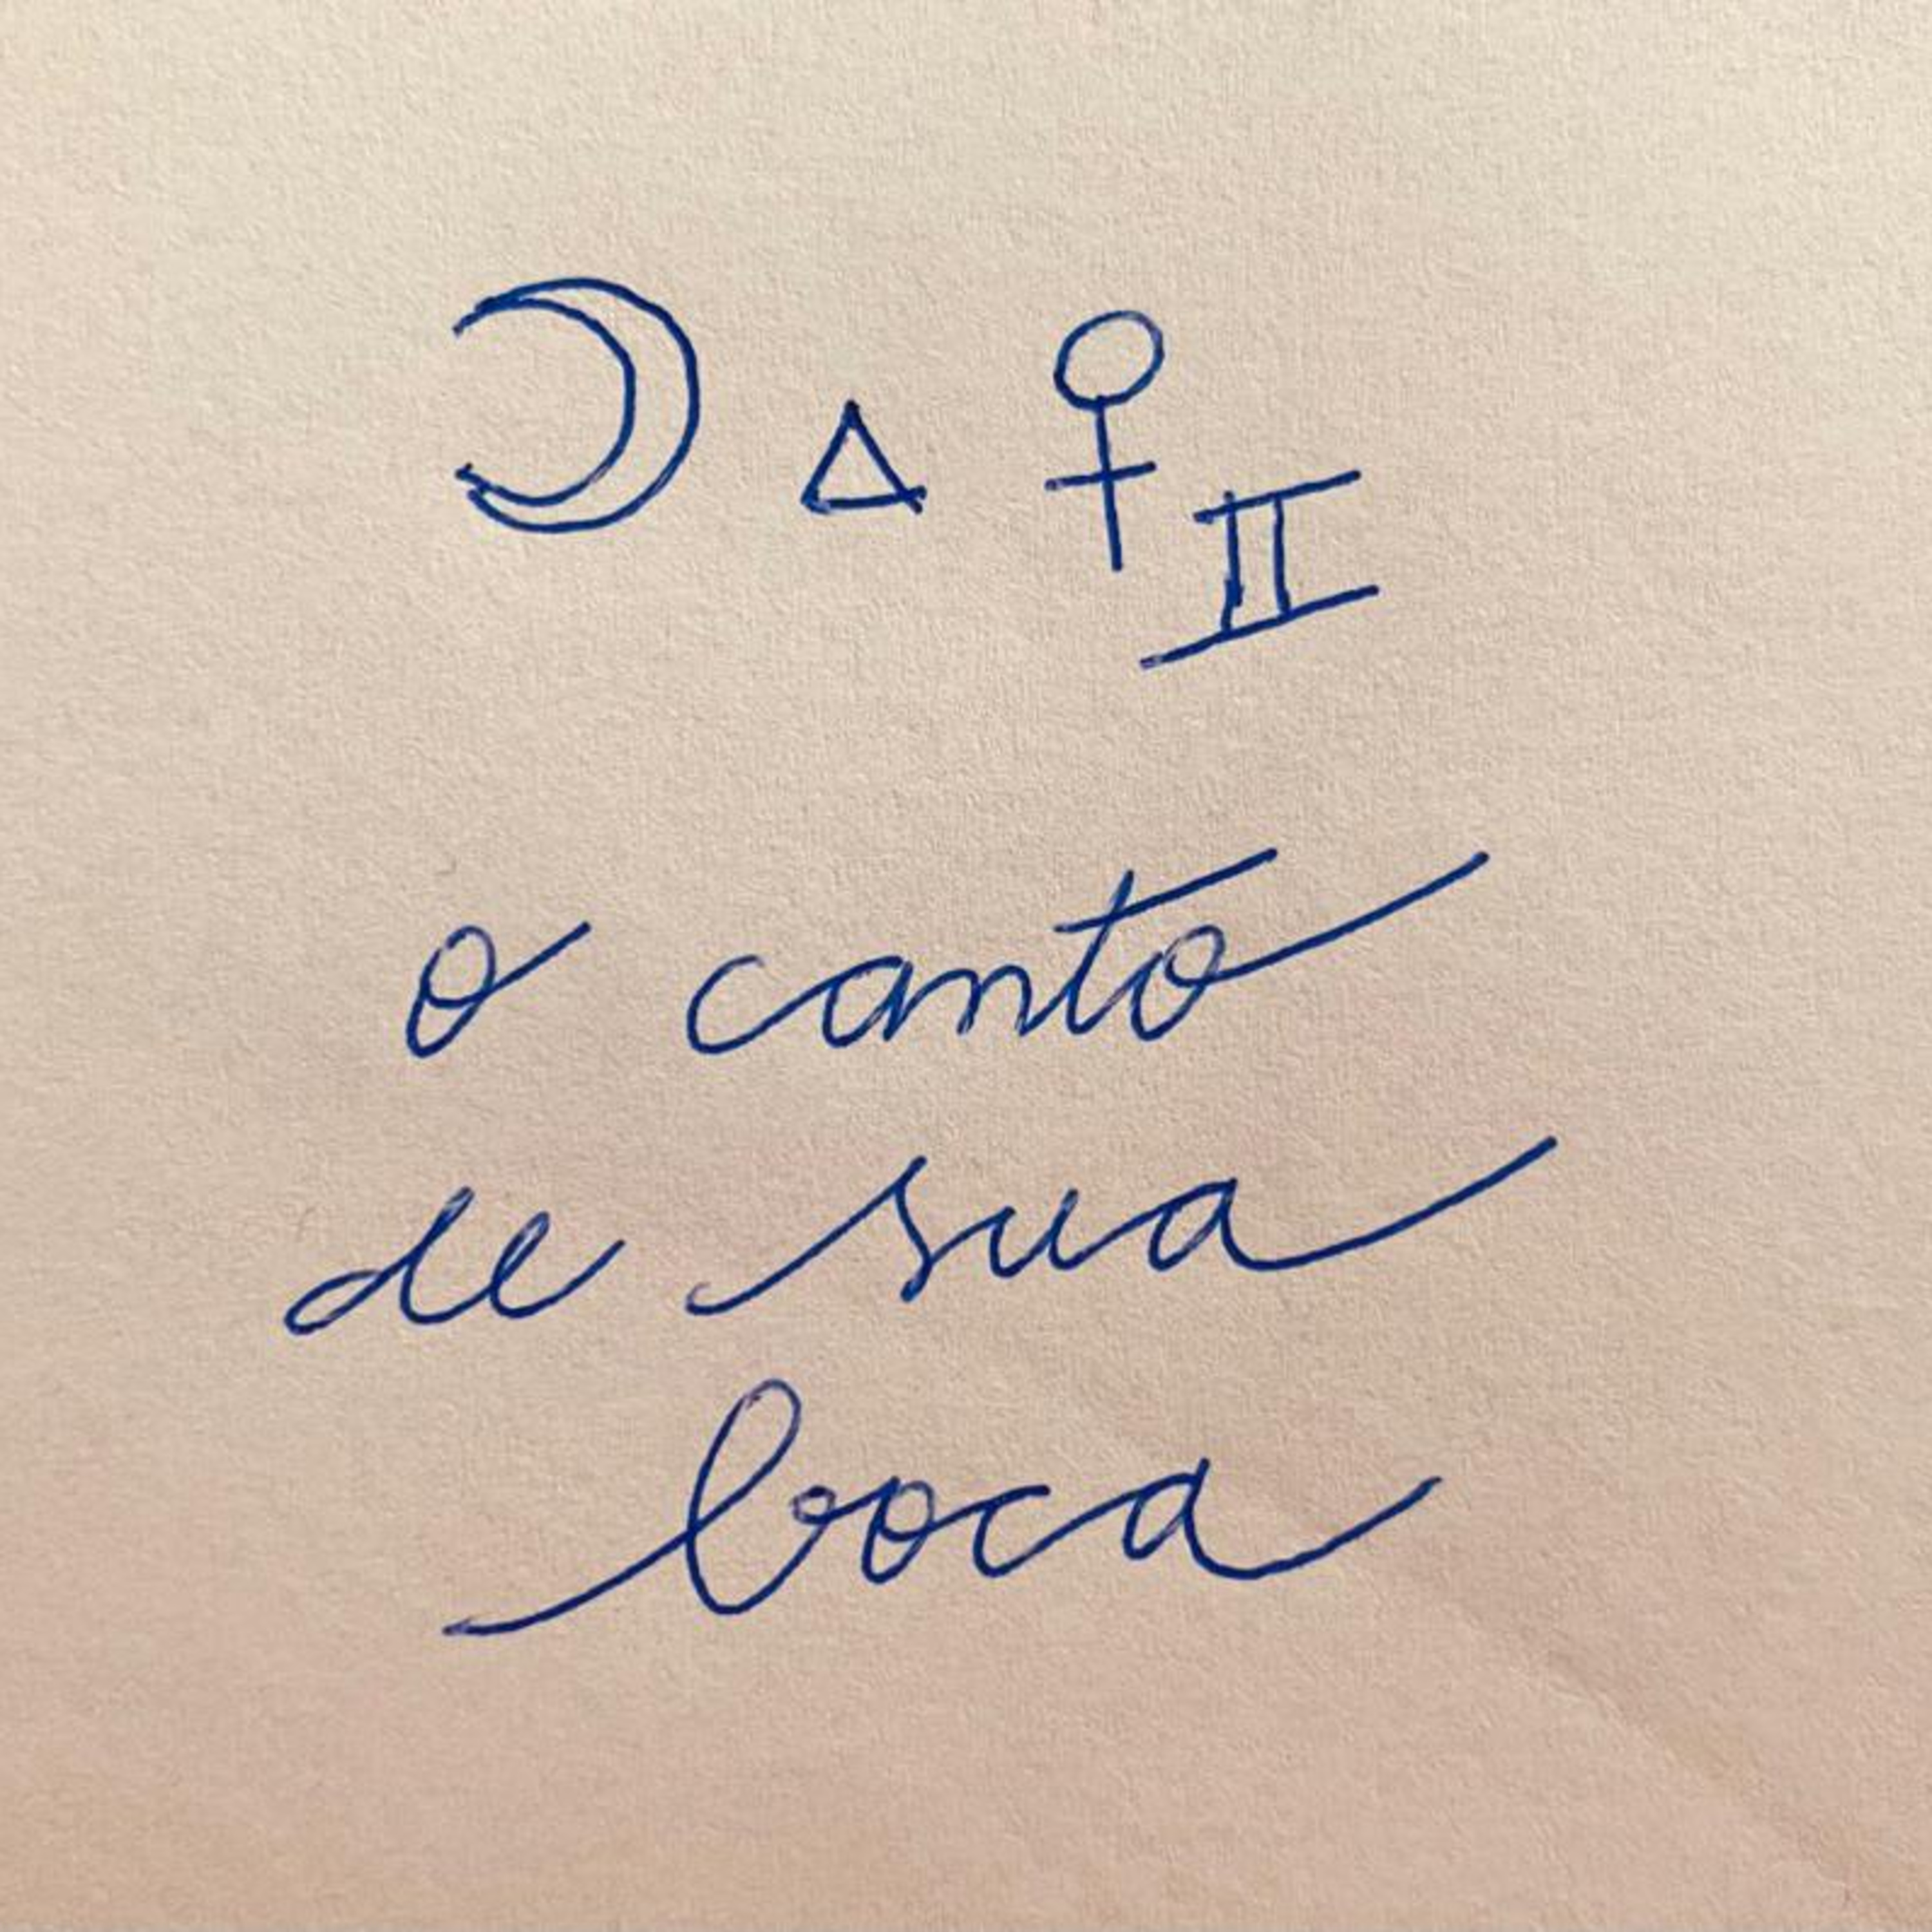 ☽ △ ♀ II
o canto
de sua
boca